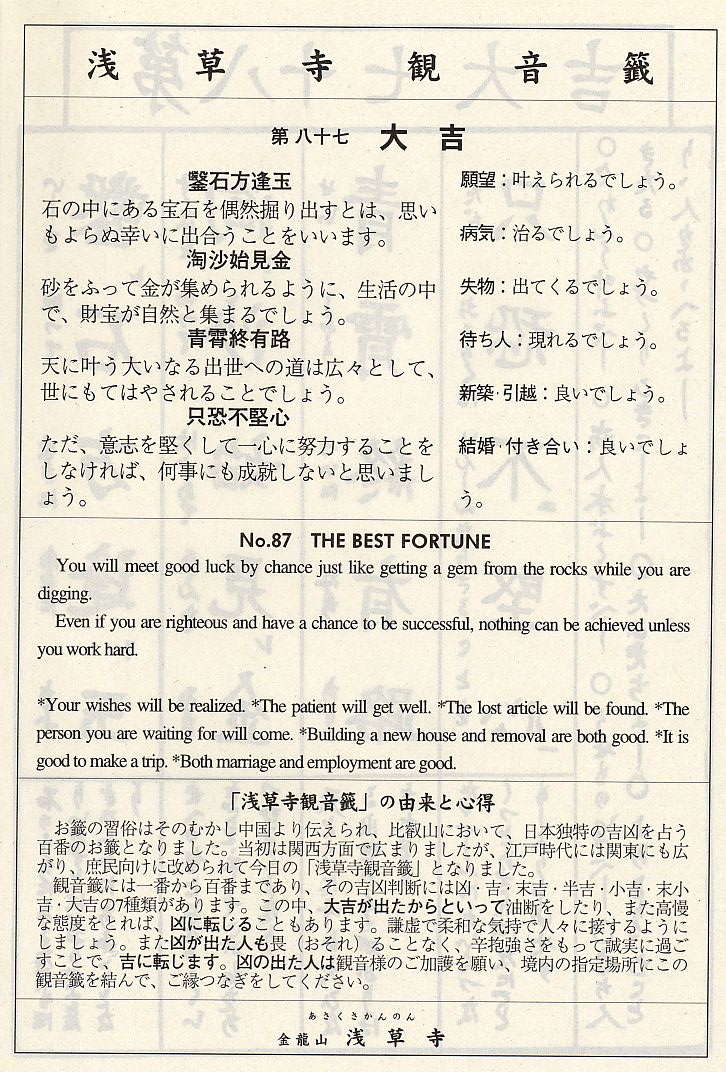 浅草寺観音籤
第八十七 大吉
鑿石方逢玉
石の中にある宝石を偶然掘り出すとは、思い
もよらぬ幸いに出合うことをいいます。
淘沙始見金
砂をふって金が集められるように、生活の中
で、財宝が自然と集まるでしょう。
青霄終有路
天に叶う大いなる出世への道は広々として、
世にもてはやされることでしょう。
只恐不堅心
ただ、意志を堅くして一心に努力することを
しなければ、何事にも成就しないと思いまし
ょう。
願望：叶えられるでしょう。
病気：治るでしょう。
失物：出てくるでしょう。
待ち人：現れるでしょう。
新築·引越：良いでしょう。
結婚·付き合い：良いでしょ
う。
No.87 THE BEST FORTUNE
You will meet good luck by chance just like getting a gem from the rocks while you are
digging.
Even if you are righteous and have a chance to be successful, nothing can be achieved unless
you work hard.
*Your wishes will be realized. *The patient will get well. *The lost article will be found. *The
person you are waiting for will come. *Building a new house and removal are both good. *It is
good to make a trip. *Both marriage and employment are good.
「浅草寺観音籤」の由来と心得
お籤の習俗はそのむかし中国より伝えられ、比叡山において、日本独特の吉凶を占う
百番のお籤となりました。当初は関西方面で広まりましたが、江戸時代には関東にも広
がり、庶民向けに改められて今日の「浅草寺観音籤」となりました。
観音籤には一番から百番まであり、その吉凶判断には凶·吉·末吉·半吉·小吉·末小
吉·大吉の7種類があります。この中、大吉が出たからといって油断をしたり、また高慢
な態度をとれば、凶に転じることもあります。謙虚で柔和な気持で人々に接するように
しましょう。また凶が出た人も畏（おそれ）ることなく、辛抱強さをもって誠実に過ご
すことで、吉に転じます。凶の出た人は観音様のご加護を願い、境内の指定場所にこの
観音籤を結んで、ご縁つなぎをしてください。
あさくさかんのん
金龍山 浅草寺